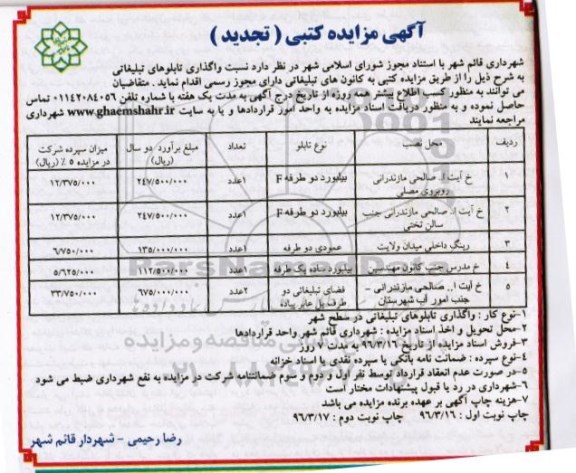 آگهی مزایده کتبی ( تجدید )
شهرداری قائم شهر با استناد مجوز شورای اسلامی شهر در نظر دارد نسبت واگذاری تابلوهای تبلیغاتی
به شرح ذیل را از طریق مزایده کتبی به کانون های تبلیغاتی دارای مجوز رسمی اقدام نماید . متقاضیان
می توانند به منظور کسب اطلاع بیشتر همه روزه از تاریخ درج آگهی به مدت یک هفته با شماره تلفن ۰۱۱۴۲۰۸۴۰۵۶ تماس
حاصل نموده و به منظور دریافت اسناد مزایده به واحد امور قراردادها و یا به سایت www.ghaemshahr.ir شهرداری
مراجعه نمایند
ردیف محل نصب نوع تابلو تعداد مبلغ برآورد دو سال (ریال) میزان سپرده شرکت در مزایده ۵ ٪ (ریال)
۱ خ آیت ا.. صالحی مازندرانی روبروی مصلی بیلبورد دو طرفه F ۱عدد ۲۴۷/۵۰۰/۰۰۰ ۱۲/۳۷۵/۰۰۰
۲ خ آیت ا.. صالحی مازندرانی جنب سالن تختی بیلبورد دو طرفه F ۱عدد ۲۴۷/۵۰۰/۰۰۰ ۱۲/۳۷۵/۰۰۰
۳ رینگ داخلی میدان ولایت عمودی دو طرفه ۱عدد ۱۳۵/۰۰۰/۰۰۰ ۶/۷۵۰/۰۰۰
۴ خ مدرس جنب کانون مهندسین بیلبورد ساده یک طرفه ۱عدد ۱۱۲/۵۰۰/۰۰۰ ۵/۶۲۵/۰۰۰
۵ خ آیت ا.. صالحی مازندرانی – جنب امور آب شهرستان فضای تبلیغاتی دو طرفه پل عابر پیاده ۲عدد ۶۷۵/۰۰۰/۰۰۰ ۳۳/۷۵۰/۰۰۰
۱-نوع کار : واگذاری تابلوهای تبلیغاتی در سطح شهر
۲-محل تحویل و اخذ اسناد مزایده : شهرداری قائم شهر واحد قراردادها
۳-فروش اسناد مزایده از تاریخ ۹۶/۳/۱۶ به مدت ۱۰ روز
۴-نوع سپرده : ضمانت نامه بانکی یا سپرده نقدی یا اسناد خزانه
۵-در صورت عدم انعقاد قرارداد توسط نفر اول و دوم و سوم ضمانتنامه شرکت در مزایده به نفع شهرداری ضبط می شود
۶-شهرداری در رد یا قبول پیشنهادات مختار است
۷-هزینه چاپ آگهی بر عهده برنده مزایده می باشد
چاپ نوبت اول : ۹۶/۳/۱۶ چاپ نوبت دوم : ۹۶/۳/۱۷
رضا رحیمی – شهردار قائم شهر